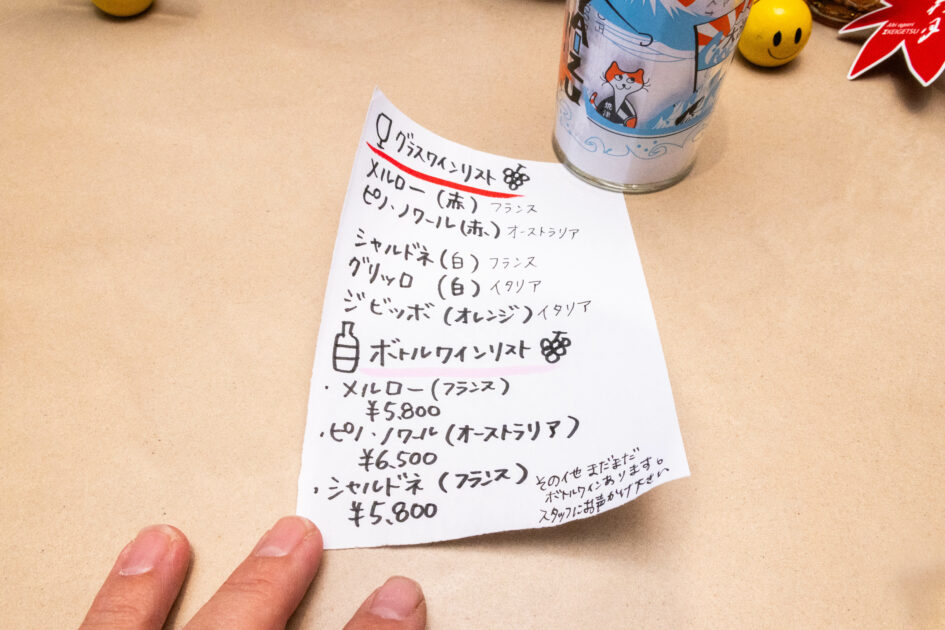 グラスワインリスト
メルロー (赤) フランス
ピノ・ノワール (赤) オーストラリア
シャルドネ (白) フランス
グリッロ (白) イタリア
ジビッボ (オレンジ) イタリア
ボトルワインリスト
・メルロー (フランス)
¥5.800
・ピノ・ノワール (オーストラリア)
¥6,500
・シャルドネ (フランス)
¥5.800
その他まだまだ
ボトルワインあります。
スタッフにお声かけ下さい
焼津
KEIGETSU